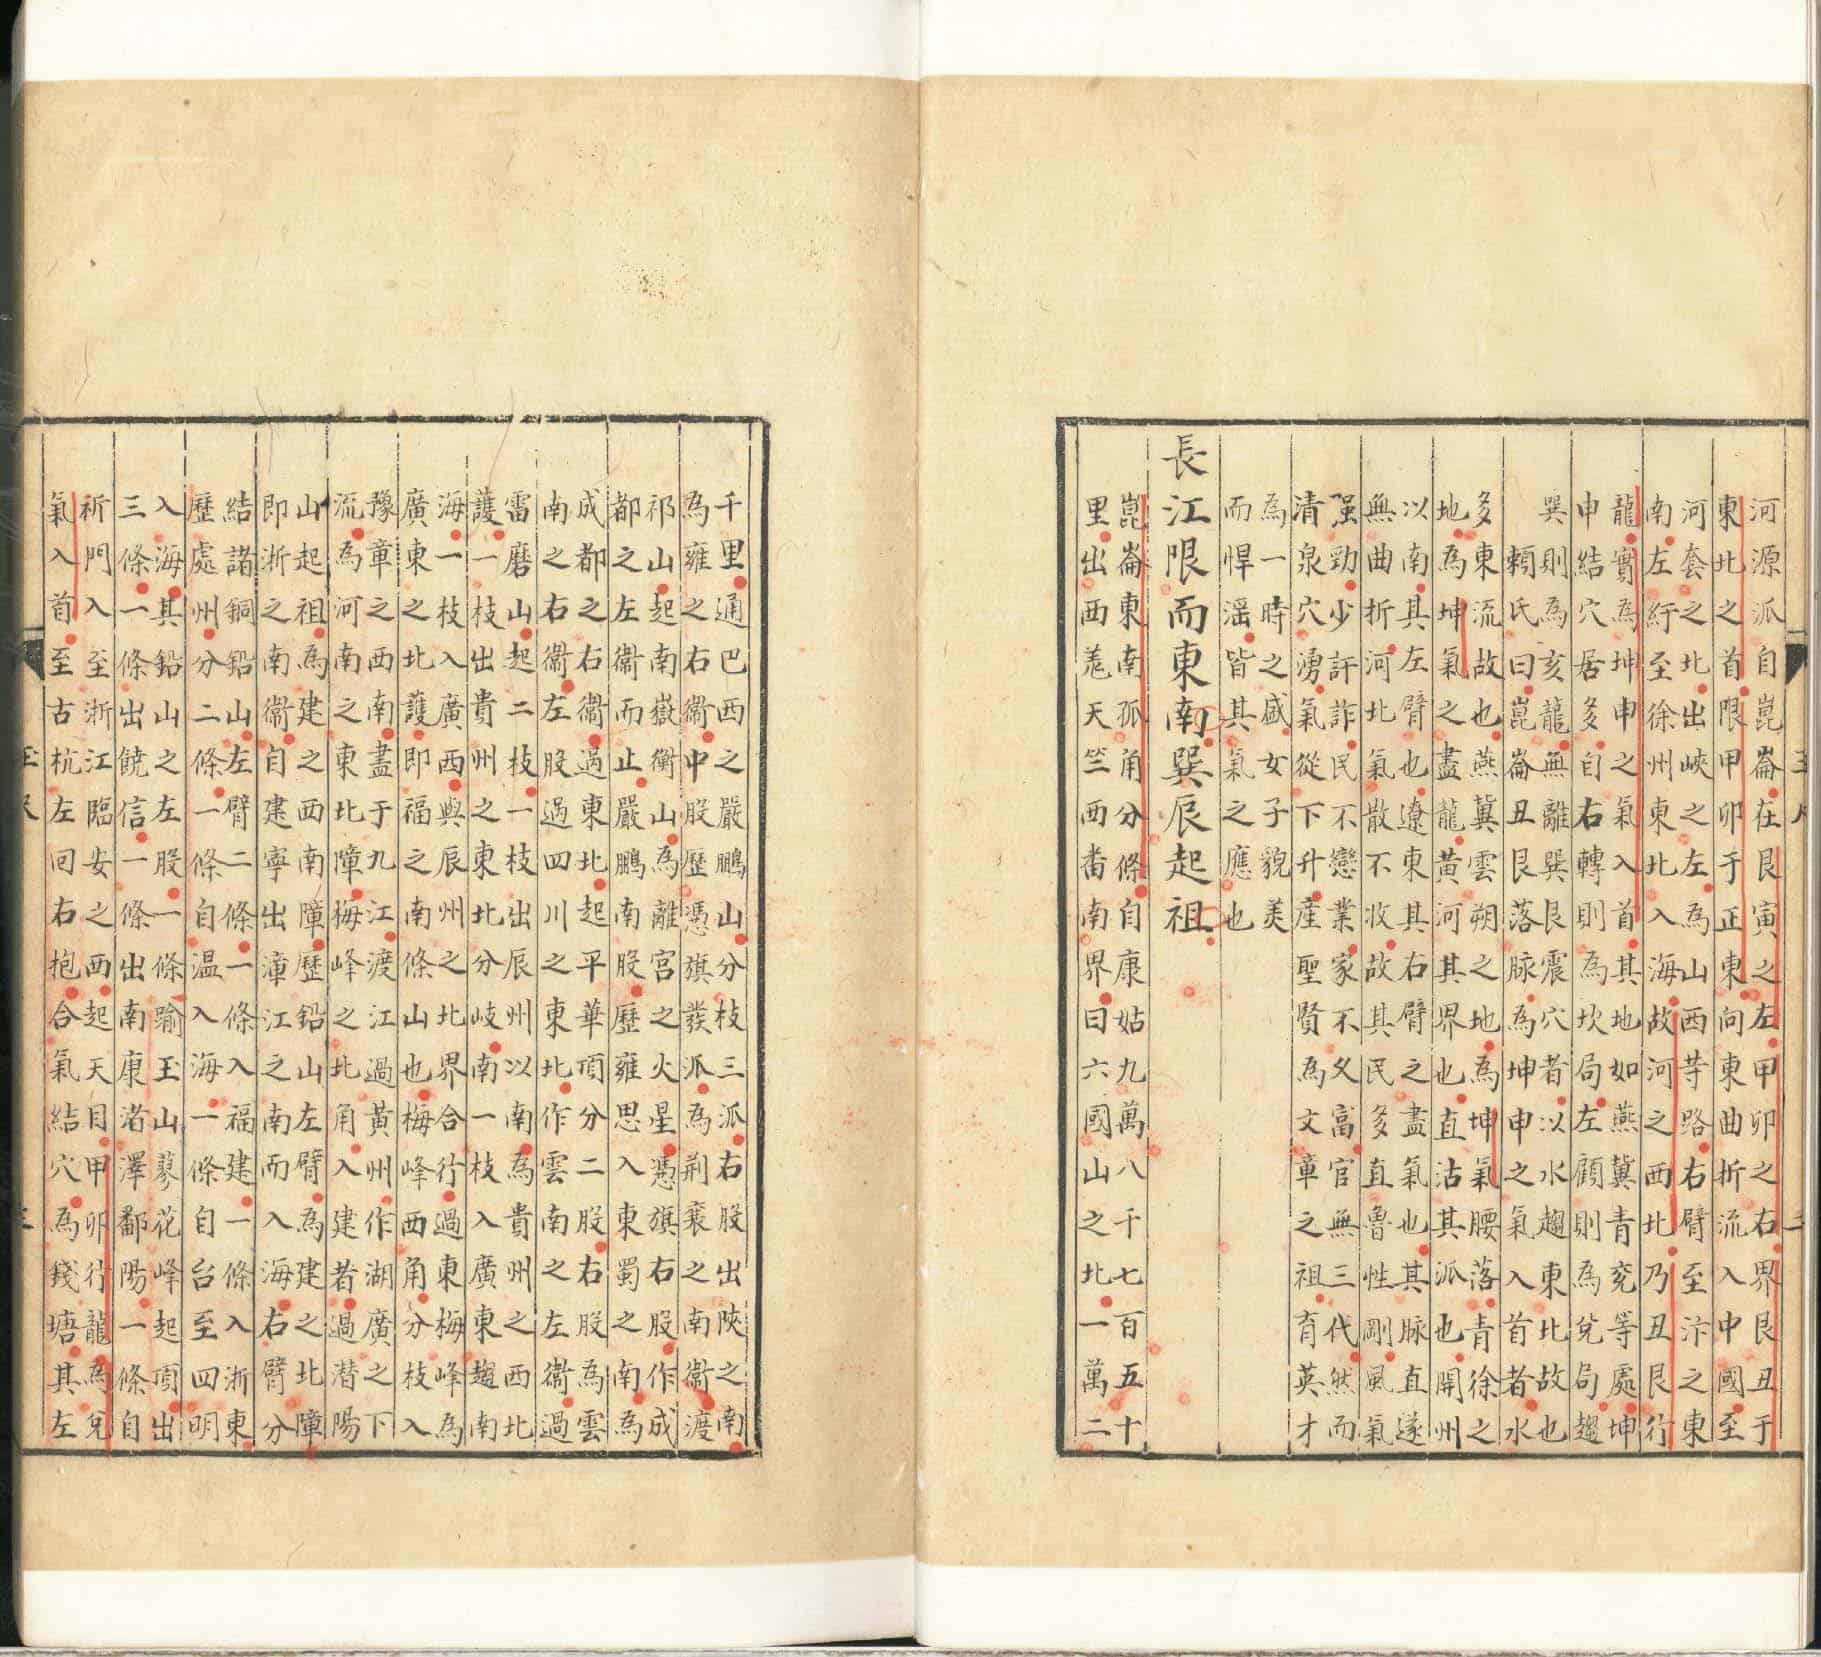 河源派自崑崙在艮寅之左甲卯之右界艮丑于
東北之首限甲卯于正東向東曲折流入中國至
河套之北出峽之左為山西等路右臂至汴之東
南左紆至徐州東北入海故河之西北乃丑艮行
龍實為坤申之氣入首其地如燕冀青兖等處坤
申結穴居多自右轉則為坎局左顧則為兌局趨
巽則為亥龍無離巽艮震穴者以水趨東北故也
賴氏曰崑崙丑艮落脉為坤申之氣入首者水
多東流故也燕冀雲朔之地為坤氣腰落青徐之
地為坤氣之盡龍黃河其界也直沽其派也開州
以南其左臂也遼東其右臂之盡氣也其脉直遂
無曲折河北氣散不收故其民多直魯性剛風氣
强勁少訐詐民不戀業家不久富官無三代然而
清泉穴湧氣從下升產聖賢為文章之祖育英才
為一時之盛女子貌美
而悍滛皆其氣之應也
長江限而東南巽辰起祖
崑崙東南孤角分條自康姑九萬八千七百五十
里出西羗天竺西畨南界曰六國山之北一萬二
千里通巴西之嚴鵬山分枝三派右股出陝之南
為雍之右衞中股歷憑旗發派為荆襄之南衞渡
祁山起南嶽衡山為離宮之火星憑旗右股作成
都之左衞而止嚴鵬南股歷雍思入東蜀之南為
成都之右衞過東北起平華頂分二股右股為雲
南之右衞左股過四川之東北作雲南之左衞過
雷磨山起二枝一枝出辰州以南為貴州之西北
護一枝出貴州之東北分岐南一枝入廣東趨南
海一枝入廣西與辰州之北界合行過東梅峰為
廣東之北護即福之南條山也梅峰西角分枝入
豫章之西南盡于九江渡江過黃州作湖廣之下
流為河南之東北障梅峰之北角入建者過潛陽
山起祖為建之西南障歷鉛山左臂為建之北障
即浙之南衞自建寧出漳江之南而入海右臂分
結諸銅鉛山左臂二條一條入福建一條入浙東
歷處州分二條一條自温入海一條自台至四明
入海其鉛山之左股一條踰玉山蓼花峰起頂出
三條一條出饒信一條出南康渚澤鄱陽一條自
祈門入至浙江臨安之西起天目甲卯行龍為兌
氣入首至古杭左回右抱合氣結穴為錢塘其左